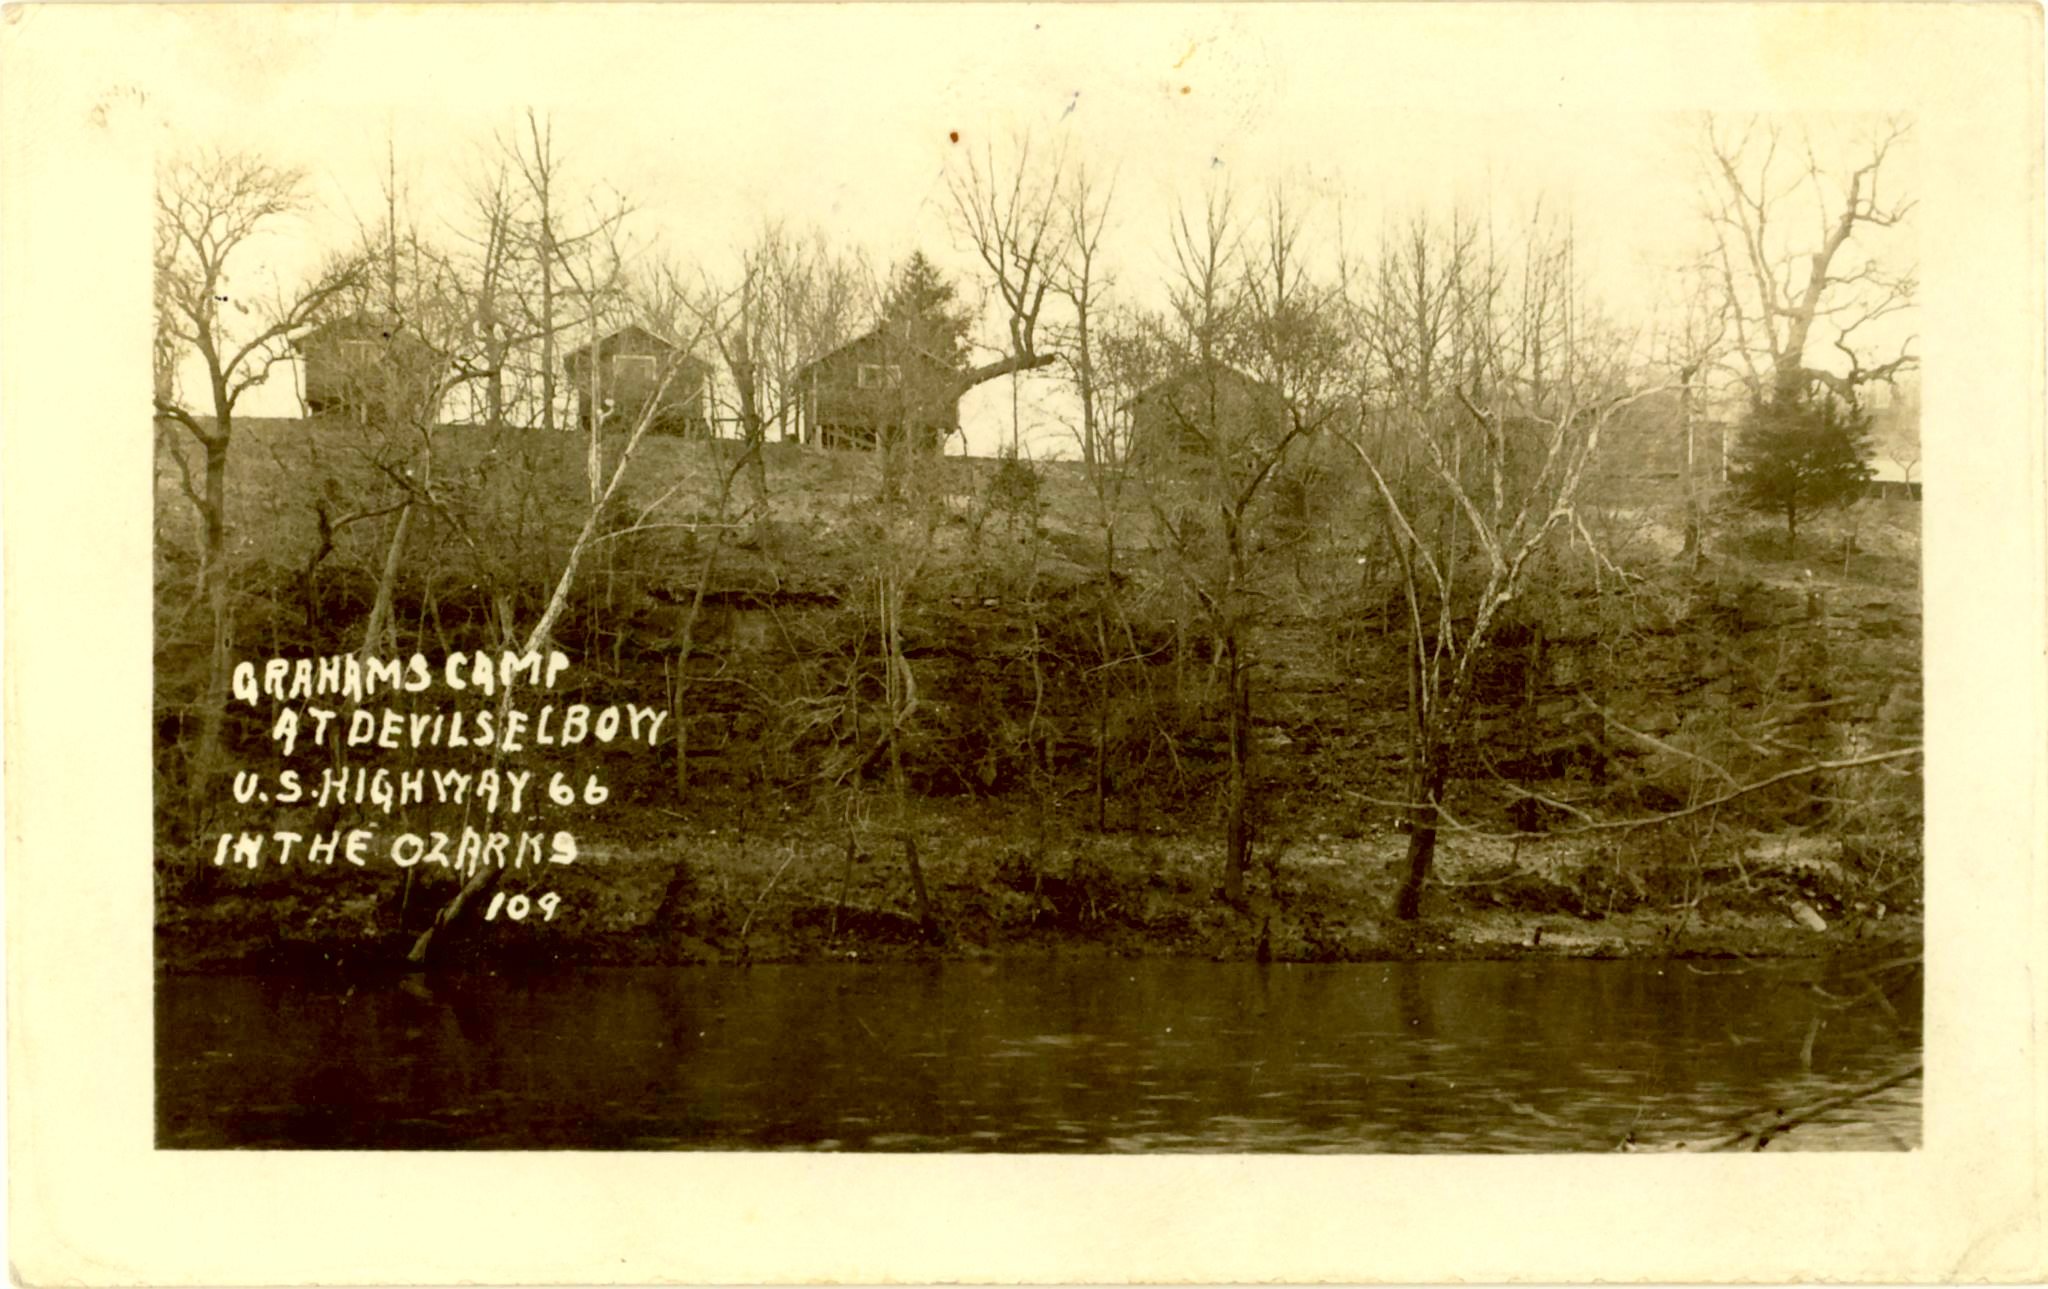 GRAHAMS CAMP
AT DEVILS ELBOW
U.S. HIGHWAY 66
IN THE OZARKS
109